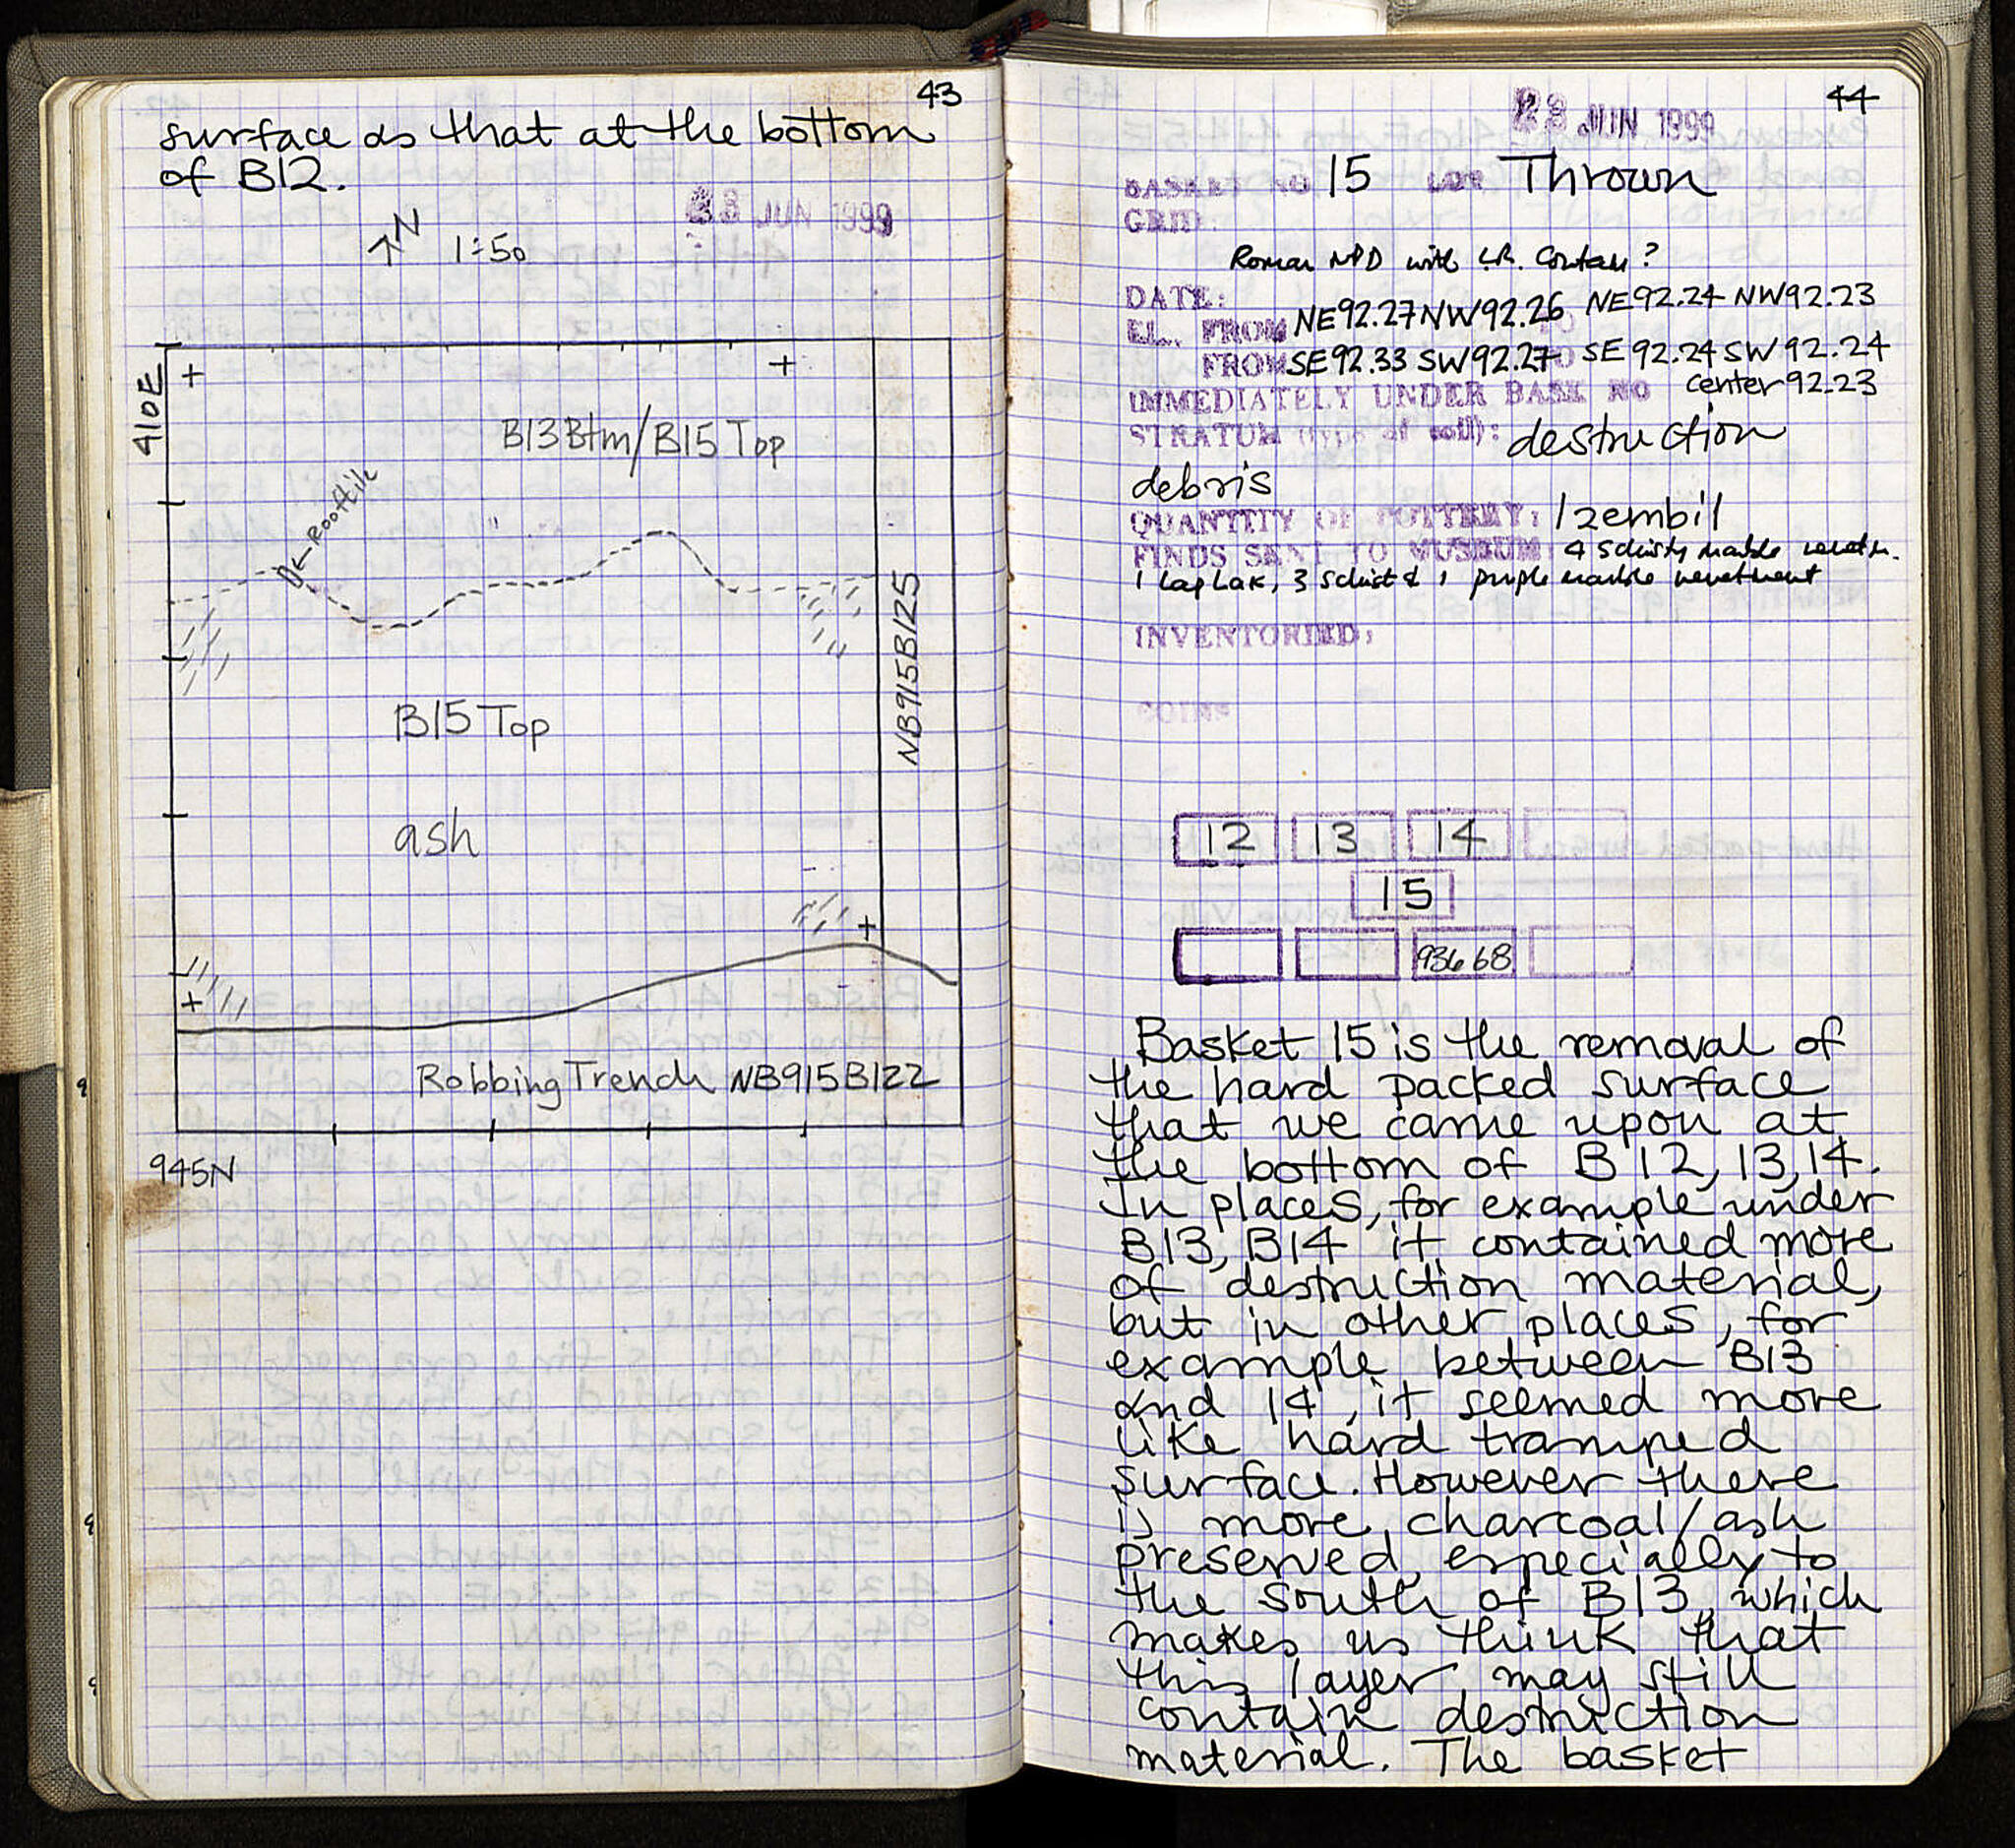 43
surface as that at the bottom
of B12.
28 JUN 1999
N 1:50
410E
B13 Btm/B15 Top
Rooftile
NB915B125
B15 Top
ash
Robbing Trench NB915B122
945N
44
28 JUN 1999
BASKET NO 15 LOT Thrown
GRID:
Roman NPD with LR. Contam?
DATE:
EL. FROM NE92.27 NW92.26 TO NE92.24 NW92.23
FROM SE92.33 SW92.27 TO SE92.24 SW92.24
center 92.23
IMMEDIATELY UNDER BASK NO
STRATUM (type of soil): destruction
debris
QUANTITY OF POTTERY: 1 zembil
FINDS SENT TO MUSEUM: 4 schisty marble
1 Lap Lak, 3 schist & 1 purple marble revetment
INVENTORIED:
COINS
12 13 14
15
936 68
Basket 15 is the removal of
the hard packed surface
that we came upon at
the bottom of B12, 13, 14.
In places, for example under
B13, B14 it contained more
of destruction material,
but in other places, for
example between B13
and 14, it seemed more
like hard tramped
surface. However there
is more charcoal/ash
preserved, especially to
the south of B13, which
makes us think that
this layer may still
contain destruction
material. The basket